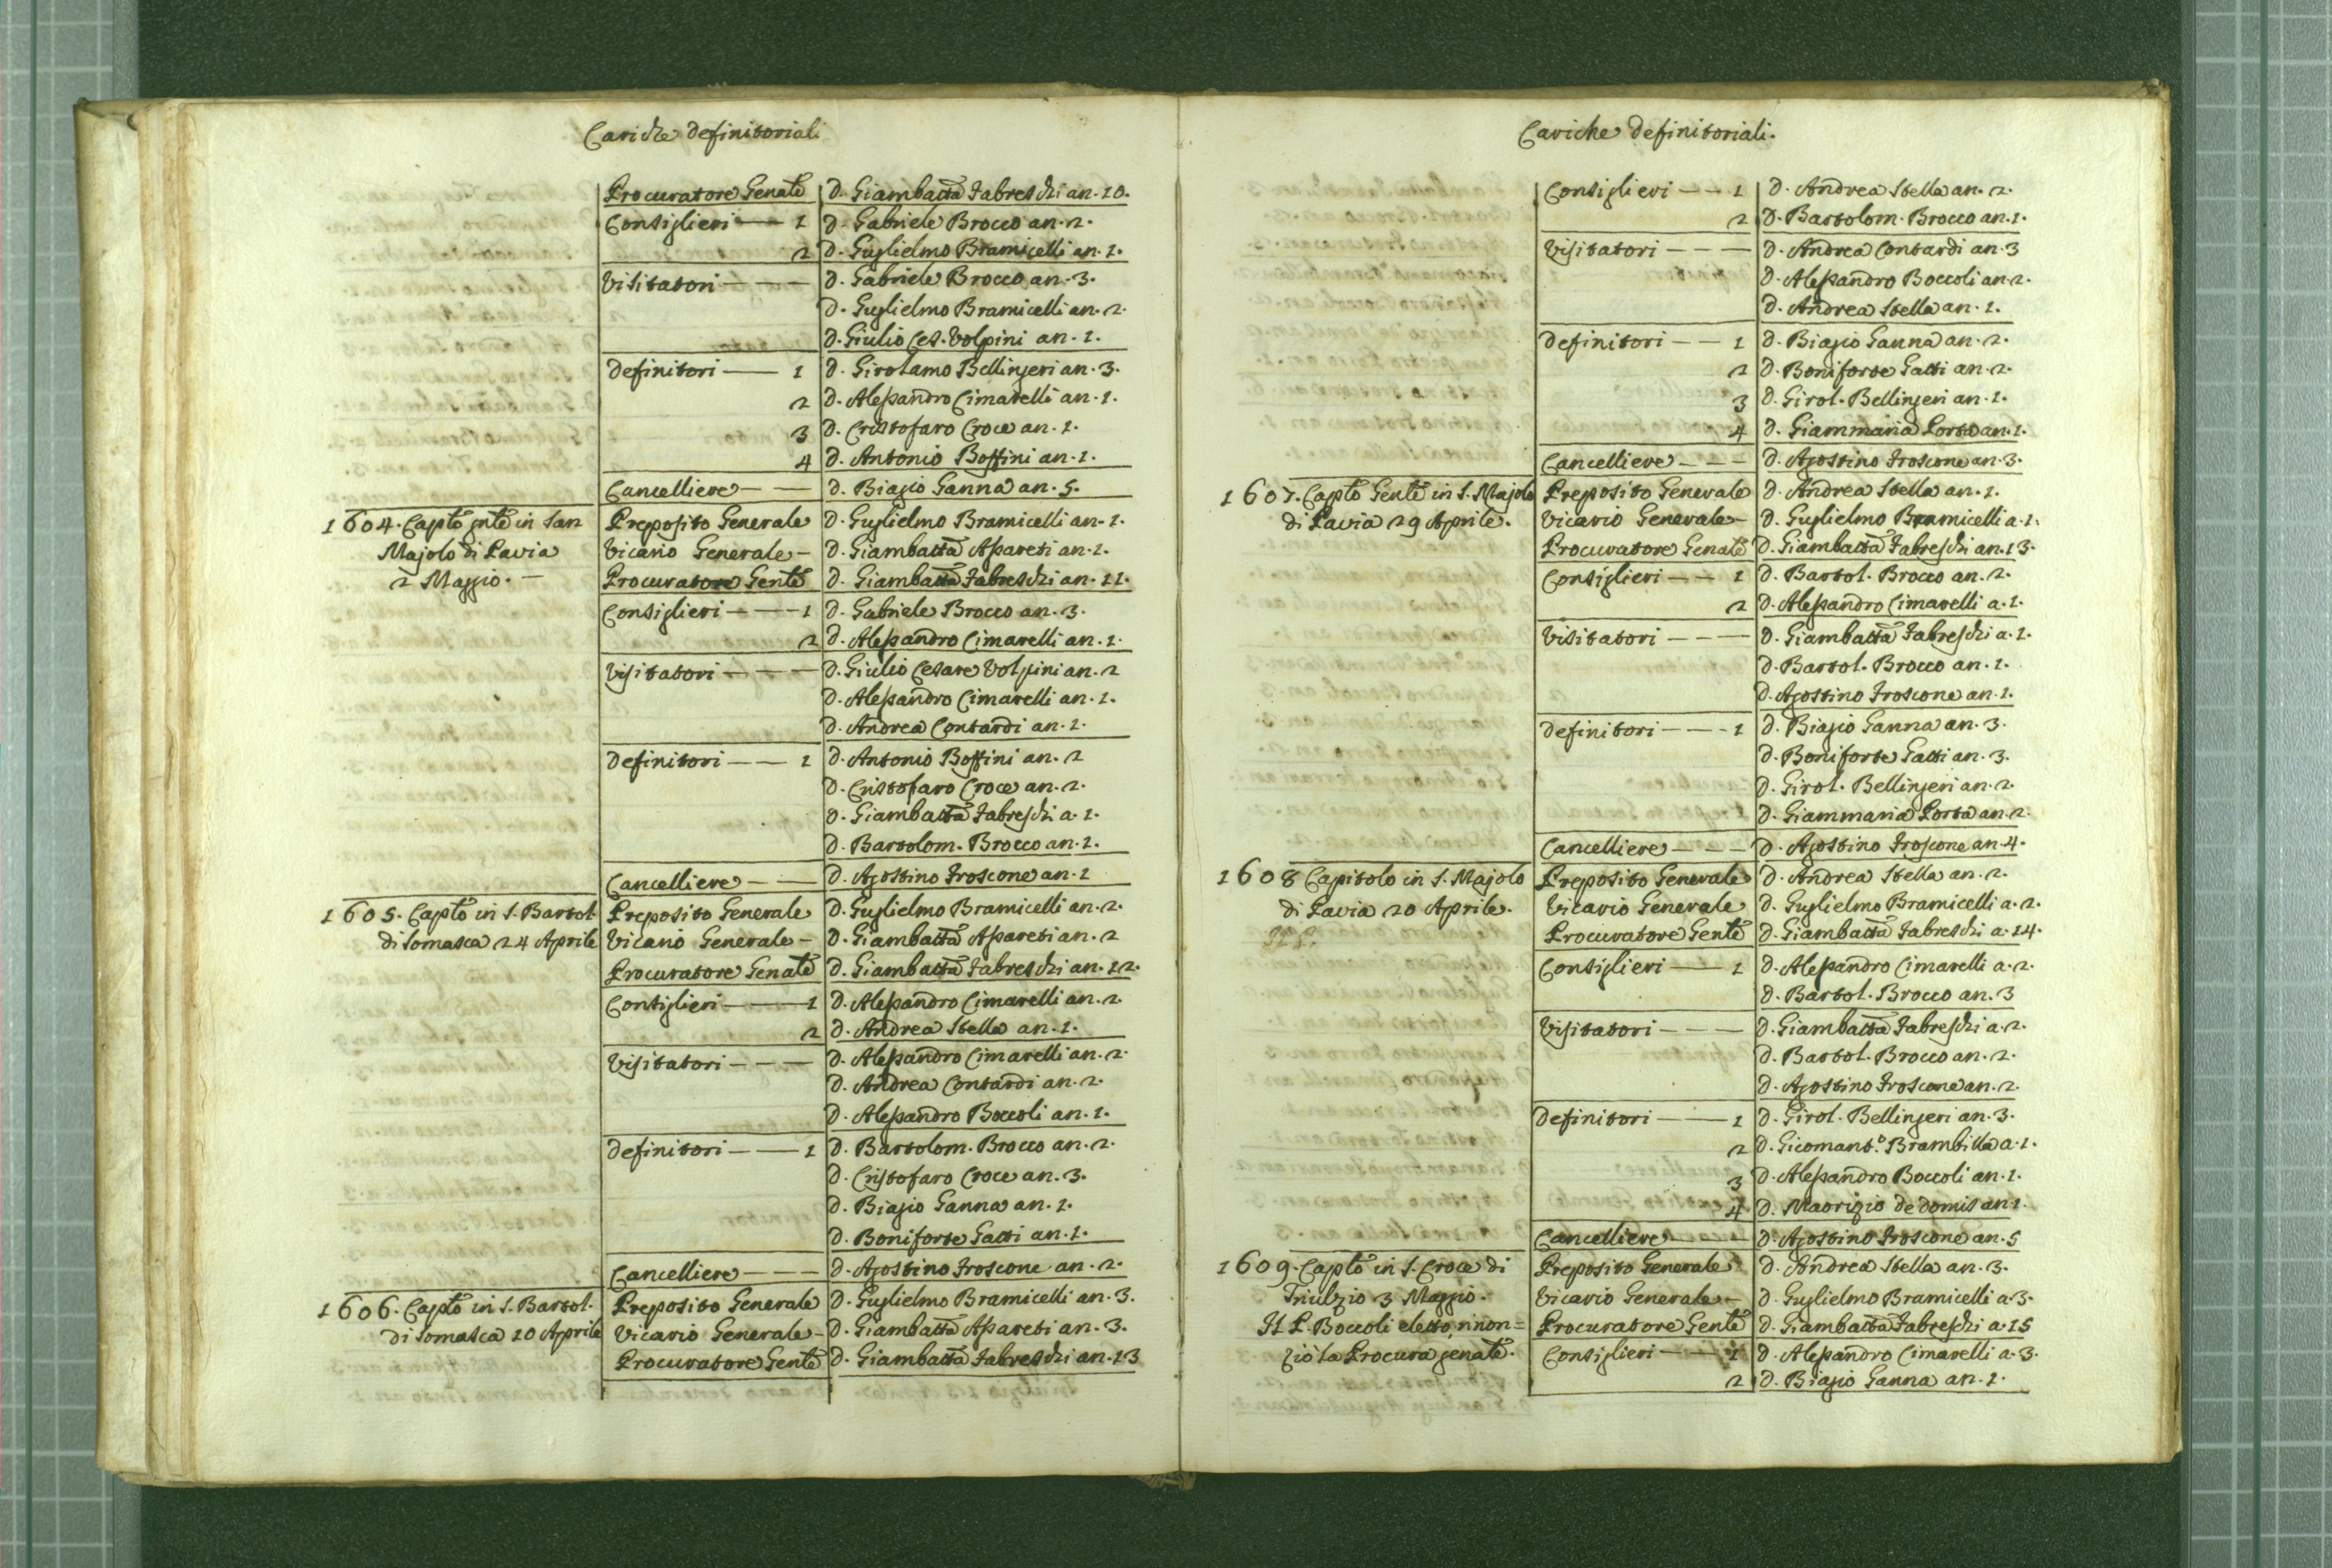 Cariche definitoriali
Procuratore Genãle d. Giambattã Fabreschi an. 10.
Consiglieri — 1 d. Gabriele Brocco an. 2.
2 d. Guglielmo Bramicelli an. 1.
Visitatori — — — d. Gabriele Brocco an. 3.
d. Guglielmo Bramicelli an. 2.
d. Giulio Ces. Volpini an. 1.
definitori — 1 d. Girolamo Bellingeri an. 3.
2 d. Alessandro Cimarelli an. 1.
3 d. Cristofaro Croce an. 1.
4 d. Antonio Boffini an. 1.
Cancelliere — — d. Biagio Ganna an. 5.
1604. Caplõ gnlẽ in San Preposito Generale d. Guglielmo Bramicelli an. 1.
Majolo di Pavia Vicario Generale — d. Giambattã Apareti an. 1.
2 Maggio. — Procuratore Genlẽ d. Giambattã Fabreschi an. 11.
Consiglieri — — — 1 d. Gabriele Brocco an. 3.
2 d. Alessandro Cimarelli an. 1.
Visitatori — — — d. Giulio Cesare Volpini an. 2
d. Alessandro Cimarelli an. 1.
d. Andrea Contardi an. 1.
definitori — — 1 d. Antonio Boffini an. 2
d. Cristofaro Croce an. 2.
d. Giambattã Fabreschi a. 1.
d. Bartolom. Brocco an. 1.
Cancelliere — — d. Agostino Froscone an. 1
1605. Caplõ in S. Bartol. Preposito Generale d. Guglielmo Bramicelli an. 2.
di Somasca 24 Aprile Vicario Generale — d. Giambattã Apareti an. 2
Procuratore Genalẽ d. Giambattã Fabreschi an. 12.
Consiglieri — — 1 d. Alessandro Cimarelli an. 2.
2 d. Andrea Stella an. 1.
Visitatori — — — d. Alessandro Cimarelli an. 2.
d. Andrea Contardi an. 2.
d. Alessandro Boccoli an. 1.
definitori — — 1 d. Bartolom. Brocco an. 2.
d. Cristofaro Croce an. 3.
d. Biagio Ganna an. 1.
d. Boniforte Gatti an. 1.
Cancelliere — — — d. Agostino Froscone an. 2.
1606. Caplõ in S. Bartol. Preposito Generale d. Guglielmo Bramicelli an. 3.
di Somasca 10 Aprile Vicario Generale — d. Giambattã Apareti an. 3.
Procuratore Genlẽ d. Giambattã Fabreschi an. 13
Cariche definitoriali.
Consiglieri — — 1 d. Andrea Stella an. 2.
2 d. Bartolom. Brocco an. 1.
Visitatori — — — d. Andrea Contardi an. 3
d. Alessandro Boccoli an. 2.
d. Andrea Stella an. 1.
definitori — — 1 d. Biagio Ganna an. 2.
2 d. Boniforte Gatti an. 2.
3 d. Girol. Bellingeri an. 1.
4 d. Giammaria Porta an. 1.
Cancelliere — — — d. Agostino Froscone an. 3.
1607. Caplõ Genlẽ in S. Majolo Preposito Generale d. Andrea Stella an. 1.
di Pavia 29 Aprile. Vicario Generale — d. Guglielmo Bramicelli a. 1.
Procuratore Genalẽ d. Giambattã Fabreschi an. 13.
Consiglieri — — 1 d. Bartol. Brocco an. 2.
2 d. Alessandro Cimarelli a. 1.
Visitatori — — — d. Giambattã Fabreschi a. 1.
d. Bartol. Brocco an. 1.
d. Agostino Froscone an. 1.
definitori — — — 1 d. Biagio Ganna an. 3.
d. Boniforte Gatti an. 3.
d. Girol. Bellingeri an. 2.
d. Giammaria Porta an. 2.
Cancelliere — — — d. Agostino Froscone an. 4.
1608 Capitolo in S. Majolo Preposito Generale d. Andrea Stella an. 2.
di Pavia 20 Aprile. Vicario Generale d. Guglielmo Bramicelli a. 2.
Procuratore Genlẽ d. Giambattã Fabreschi a. 14.
Consiglieri — 1 d. Alessandro Cimarelli a. 2.
d. Bartol. Brocco an. 3
Visitatori — — — d. Giambattã Fabreschi a. 2.
d. Bartol. Brocco an. 2.
d. Agostino Froscone an. 2.
definitori — — 1 d. Girol. Bellingeri an. 3.
2 d. Gicomant.º Brambilla a. 1.
3 d. Alessandro Boccoli an. 1.
4 d. Maorizio de domis an. 1.
Cancelliere — d. Agostino Froscone an. 5
1609. Caplõ in S. Croce di Preposito Generale d. Andrea Stella an. 3.
Triulzio 3 Maggio. Vicario Generale — d. Guglielmo Bramicelli a. 3.
Il P. Boccoli eletto, rinon= Procuratore Genlẽ d. Giambattã Fabreschi a. 15
ziò la Procura genalẽ. Consiglieri — 1 d. Alessandro Cimarelli a. 3.
2 d. Biagio Ganna an. 1.